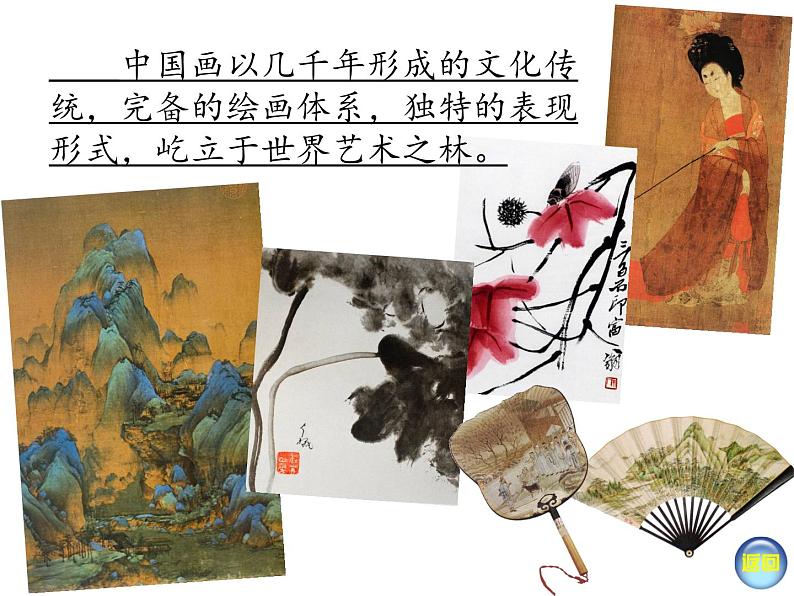 中国画以几千年形成的文化传
统，完备的绘画体系，独特的表现
形式，屹立于世界艺术之林。
三百石印富
返回